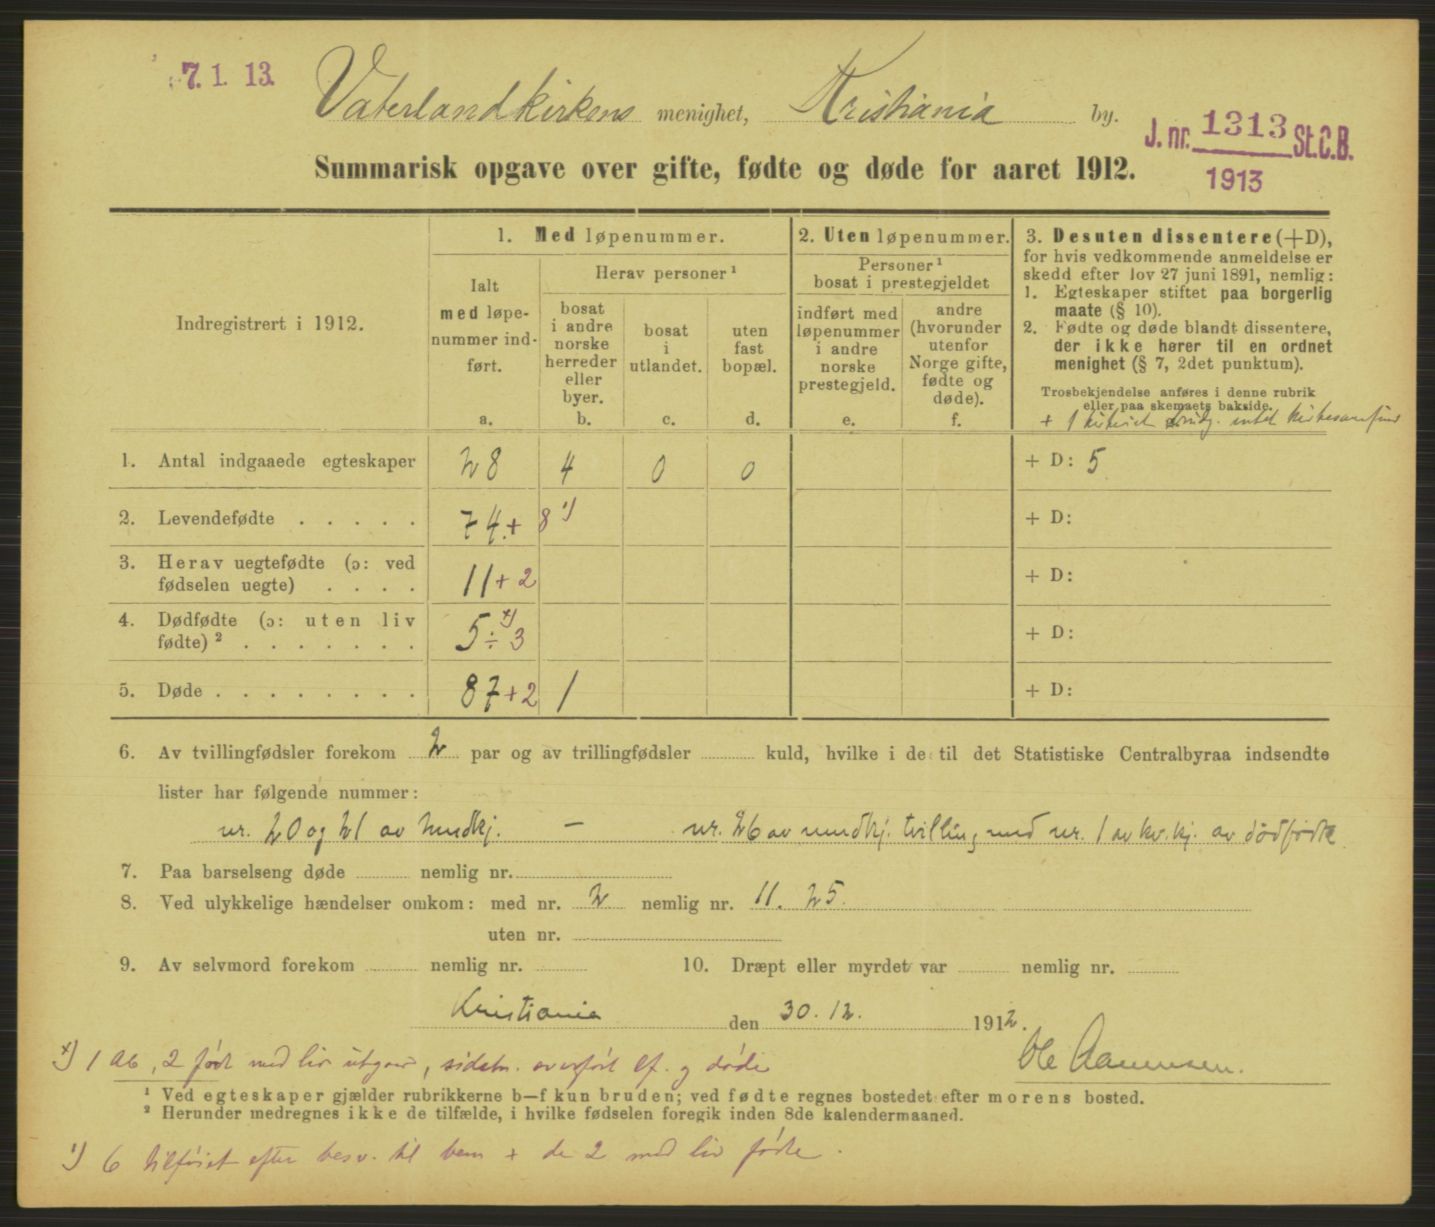 7. 1. 13.
Vaterlandkirkens menighet, Kristiania by.
J. nr. 1313 St.C.B.
1913
Summarisk opgave over gifte, fødte og døde for aaret 1912.
Indregistrert i 1912.
1. Med løpenummer.
Ialt med løpenummer indført.
a.
Herav personer ¹
bosat i andre norske herreder eller byer.
b.
bosat i utlandet.
c.
uten fast bopæl.
d.
2. Uten løpenummer.
Personer ¹ bosat i prestegjeldet
indført med løpenummer i andre norske prestegjeld.
e.
andre (hvorunder utenfor Norge gifte, fødte og døde).
f.
3. Desuten dissentere (+D),
for hvis vedkommende anmeldelse er
skedd efter lov 27 juni 1891, nemlig:
1. Egteskaper stiftet paa borgerlig
maate (§ 10).
2. Fødte og døde blandt dissentere,
der ikke hører til en ordnet
menighet (§ 7, 2det punktum).
Trosbekjendelse anføres i denne rubrik
eller paa skemaets bakside.
+ 1
1. Antal indgaaede egteskaper 28 4 0 0 + D: 5
2. Levendefødte . . . . . 74 + 8 ¹) + D:
3. Herav uegtefødte (ɔ: ved
fødselen uegte) . . . . 11 + 2 + D:
4. Dødfødte (ɔ: uten liv
fødte) ² . . . . . . . 5 ÷ 3 x) + D:
5. Døde . . . . . . . . 87 + 2 1 + D:
6. Av tvillingfødsler forekom 2 par og av trillingfødsler kuld, hvilke i de til det Statistiske Centralbyraa indsendte
lister har følgende nummer:
nr. 20 og 21 av mndkj. — nr. 26 av mndkj. tvilling med nr. 1 av kv.kj. av dødfødte
7. Paa barselseng døde nemlig nr.
8. Ved ulykkelige hændelser omkom: med nr. 2 nemlig nr. 11. 25.
uten nr.
9. Av selvmord forekom nemlig nr. 10. Dræpt eller myrdet var nemlig nr.
Kristiania den 30. 12. 1912.
Ole Aamunsen.
x) 1 ab, 2 født med liv utgaar, sidstn. overført lf. og døde
¹ Ved egteskaper gjælder rubrikkerne b—f kun bruden; ved fødte regnes bostedet efter morens bosted.
² Herunder medregnes ikke de tilfælde, i hvilke fødselen foregik inden 8de kalendermaaned.
¹) 6 tilføiet efter besv. til bem + de 2 med liv fødte.